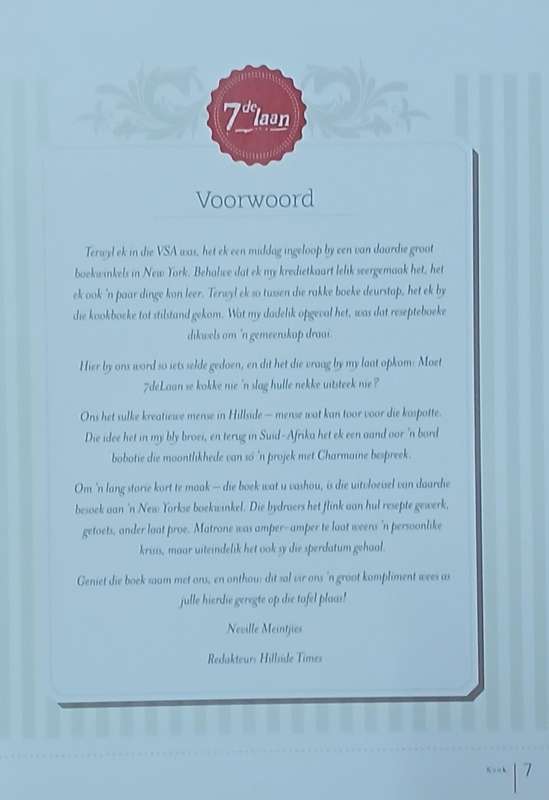 7de laan
Voorwoord
Terwyl ek in die VSA was, het ek een middag ingeloop by een van daardie groot
boekwinkels in New York. Behalwe dat ek my kredietkaart lelik seergemaak het, het
ek ook 'n paar dinge kon leer. Terwyl ek so tussen die rakke boeke deurstap, het ek by
die kookboeke tot stilstand gekom. Wat my dadelik opgeval het, was dat resepteboeke
dikwels om 'n gemeenskap draai.
Hier by ons word so iets selde gedoen, en dit het die vraag by my laat opkom: Moet
7deLaan se kokke nie 'n slag hulle nekke uitsteek nie?
Ons het sulke kreatiewe mense in Hillside – mense wat kan toor voor die kospotte.
Die idee het in my bly broei, en terug in Suid-Afrika het ek een aand oor 'n bord
bobotie die moontlikhede van só 'n projek met Charmaine bespreek.
Om 'n lang storie kort te maak – die boek wat u vashou, is die uitvloeisel van daardie
besoek aan 'n New Yorkse boekwinkel. Die bydraers het flink aan hul resepte gewerk,
getoets, ander laat proe. Matrone was amper-amper te laat weens 'n persoonlike
krisis, maar uiteindelik het ook sy die sperdatum gehaal.
Geniet die boek saam met ons, en onthou: dit sal vir ons 'n groot kompliment wees as
julle hierdie geregte op die tafel plaas!
Neville Meintjies
Redakteur: Hillside Times
Kook 7